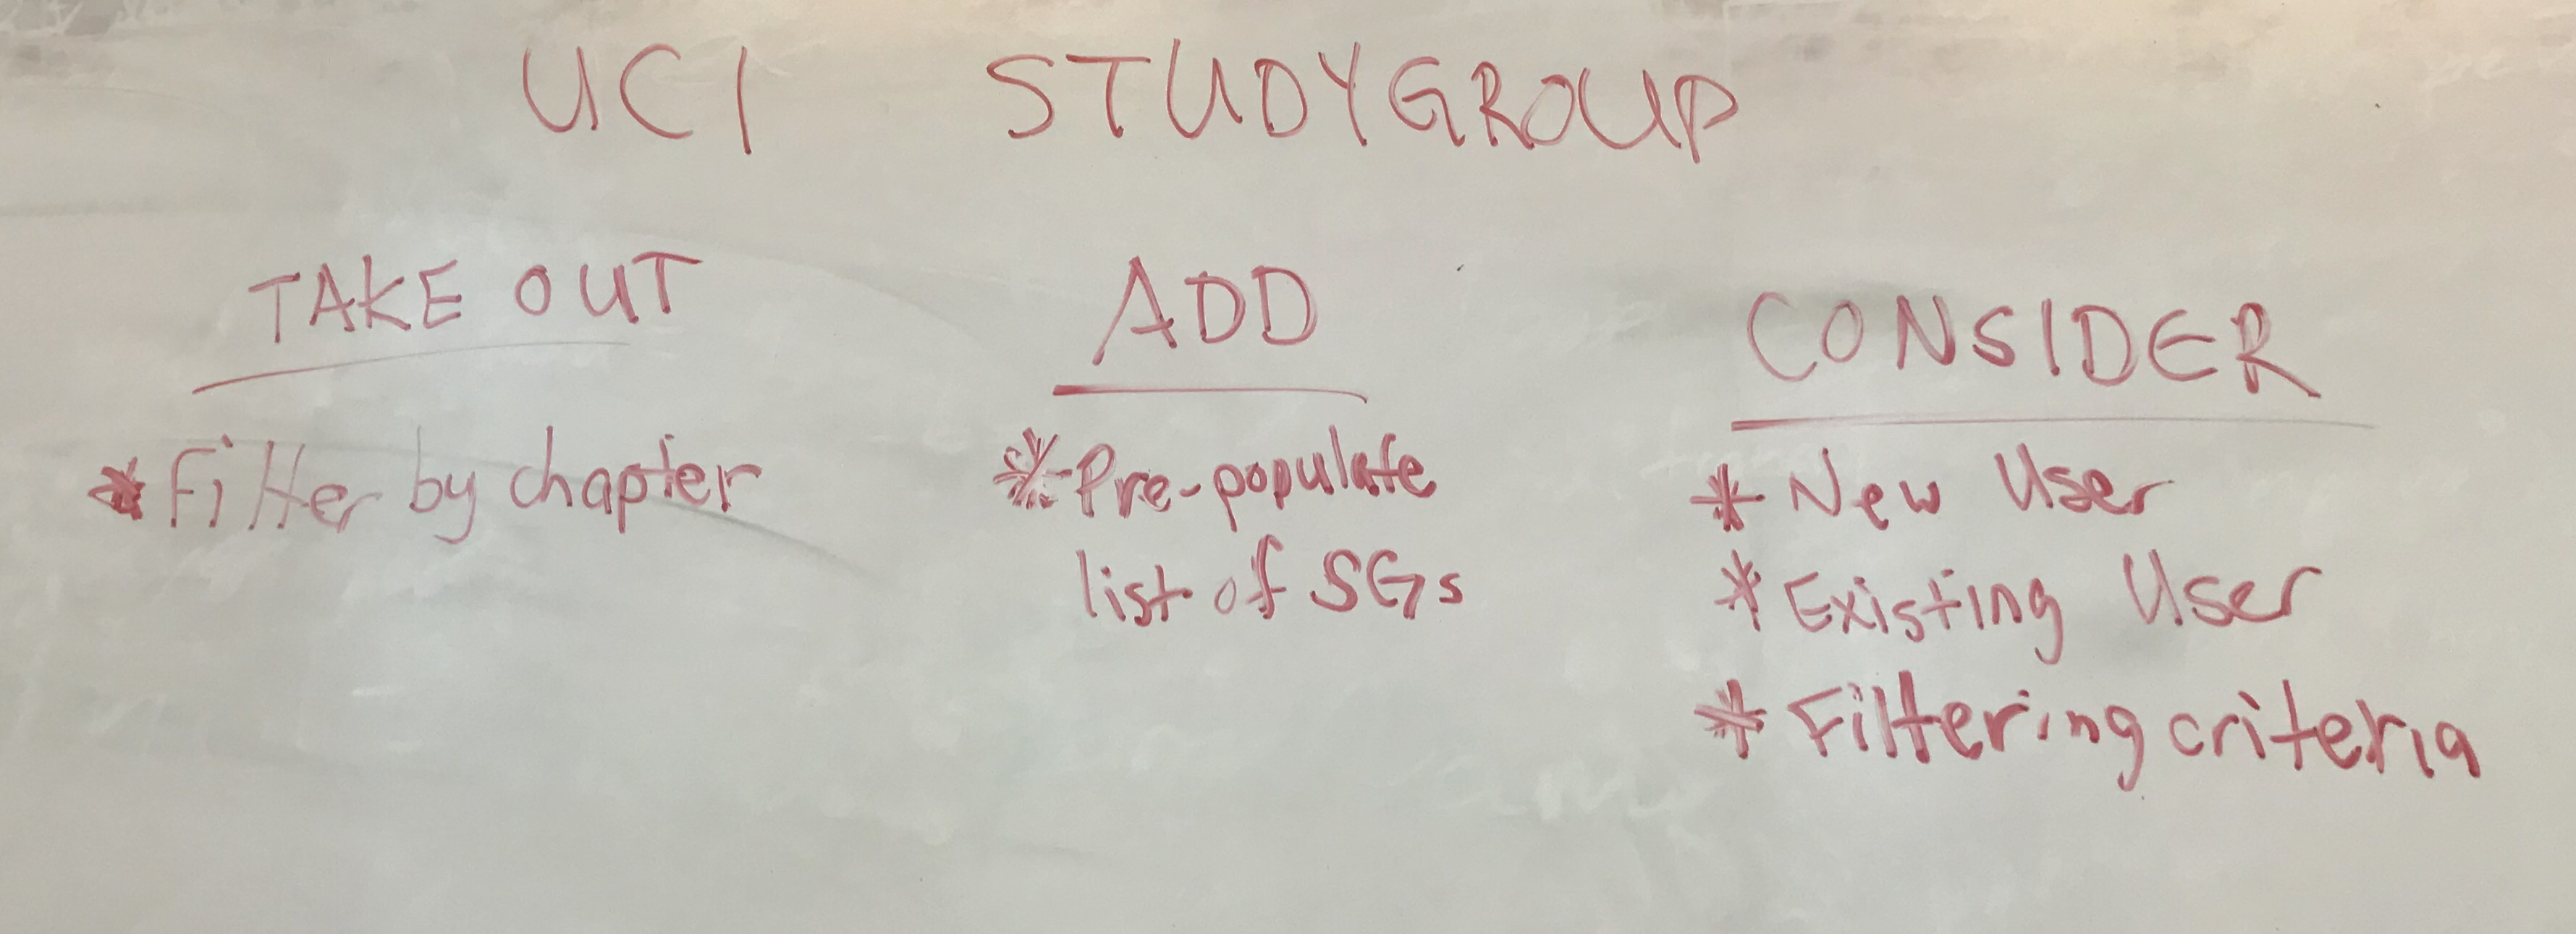 UCI STUDYGROUP
TAKE OUT
* Filter by chapter
ADD
* Pre-populate
list of SGs
CONSIDER
* New User
* Existing User
* Filtering criteria